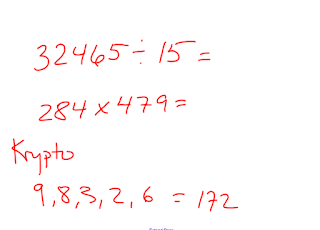 32465 ÷ 15 =
284 x 479 =
Krypto
9, 8, 3, 2, 6 = 172